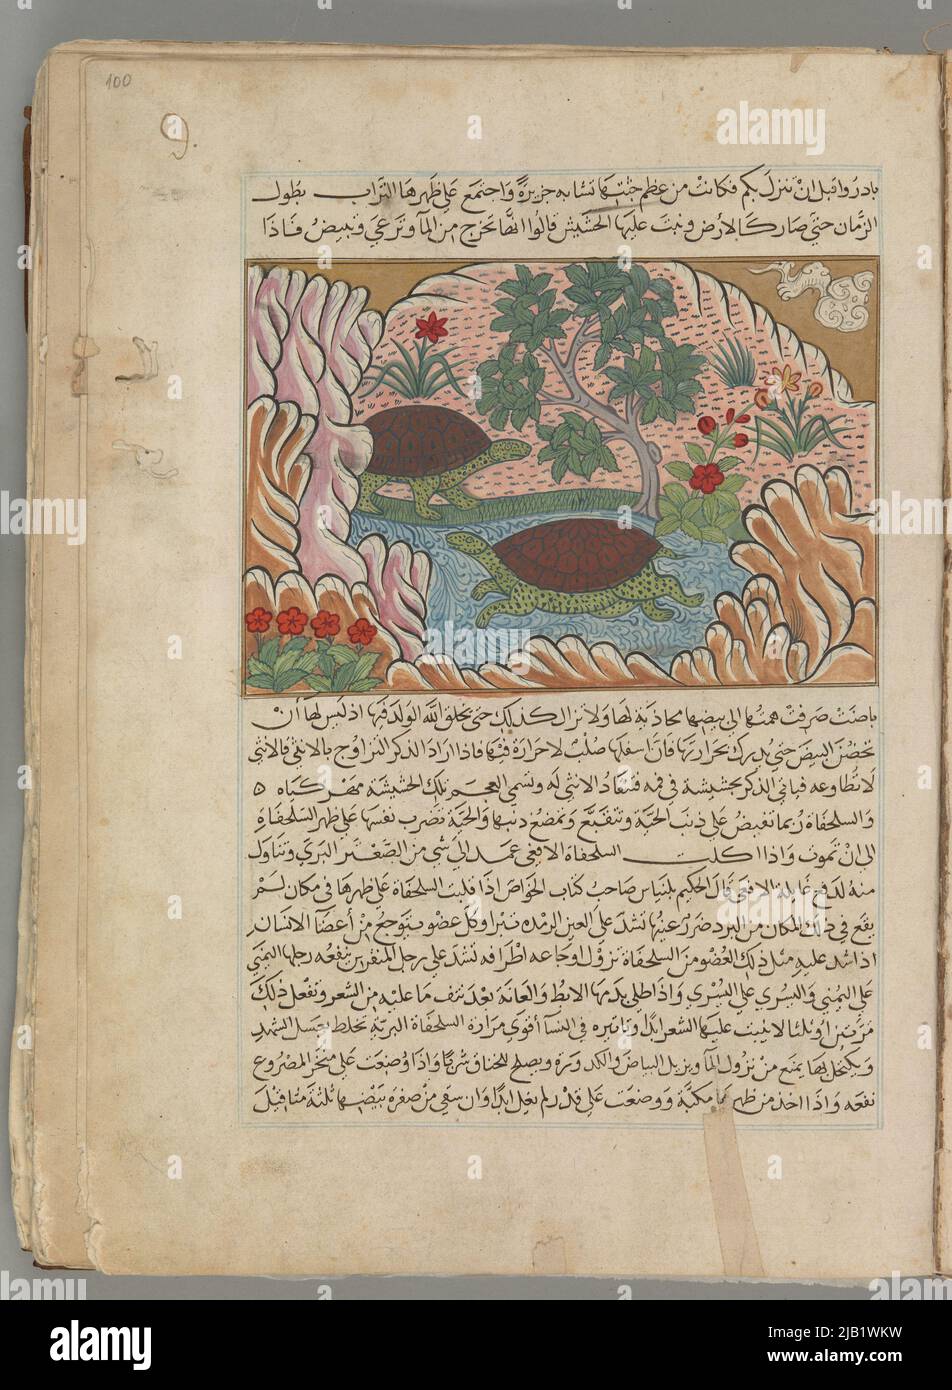 100
9
بادروا قبل ان ننزل بكم فكانت من عظم جثتها تشابه جزيرة واجتمع على ظهرها التراب بطول
الزمان حتى صار كالارض ونبت عليها الحشيش قالوا انها تخرج من المآ وترعى وتبيض فاذا
باضت صرفت همتها الى بيضها محاذية لها ولا تزال كذلك حتى يخلق الله الولد فيها اذ ليس لها أن
تحضن البيض حتى يدرك بحرارتها فان اسفلها صلب لا حرارة فيها فاذا اراد الذكر التزاوج بالانثى فالانثى
لا تطاوعه فياتي الذكر بحشيشة في فمه فتنقاد الانثى له وتسمى العجم تلك الحشيشة مهركياه ٥
والسلحفاة ربما تقبض على ذنب الحية وتمضغ ذنبها والحية تضرب نفسها على ظهر السلحفاة
الى ان تموت واذا اكلت السلحفاة الافعى عمد الى شي من الصعتر البري وتناول
منه لدفع غايلة الافعى قال الحكيم بليناس صاحب كتاب الخواص اذا قلبت السلحفاة على ظهرها في مكان لم
يقع في ذلك المكان من البرد ضرر عينها تشد على العين الرمده تبرا وكل عضو يتوجع من أعضآ الانسان
اذا شد عليه مثل ذلك العضو من السلحفاة تزول اوجاعه اطرافه تشد على رجل المنقرس تنفعه رجلها اليمنى
على اليمنى واليسرى على اليسرى واذا طلى بدمها الابط والعانة بعد نتف ما عليه من الشعر وتفعل ذلك
مرتين او ثلثا لا ينبت عليها الشعر ابدا وتاثيره في النسآ أقوى مرارة السلحفاة البرية تخلط بعسل الشهد
ويكتحل بها يمنع من نزول المآ ويزيل البياض ويصلح للخناق شربا واذا وضعت على منخر المصروع
نفعه واذا اخذ من ظهرها مكبة ووضعت على قدر لم يغل ابدا وان سقى من صفره بيضها ثلثة مثاقيل
alamy
Image ID: 2JB1WKW
www.alamy.com